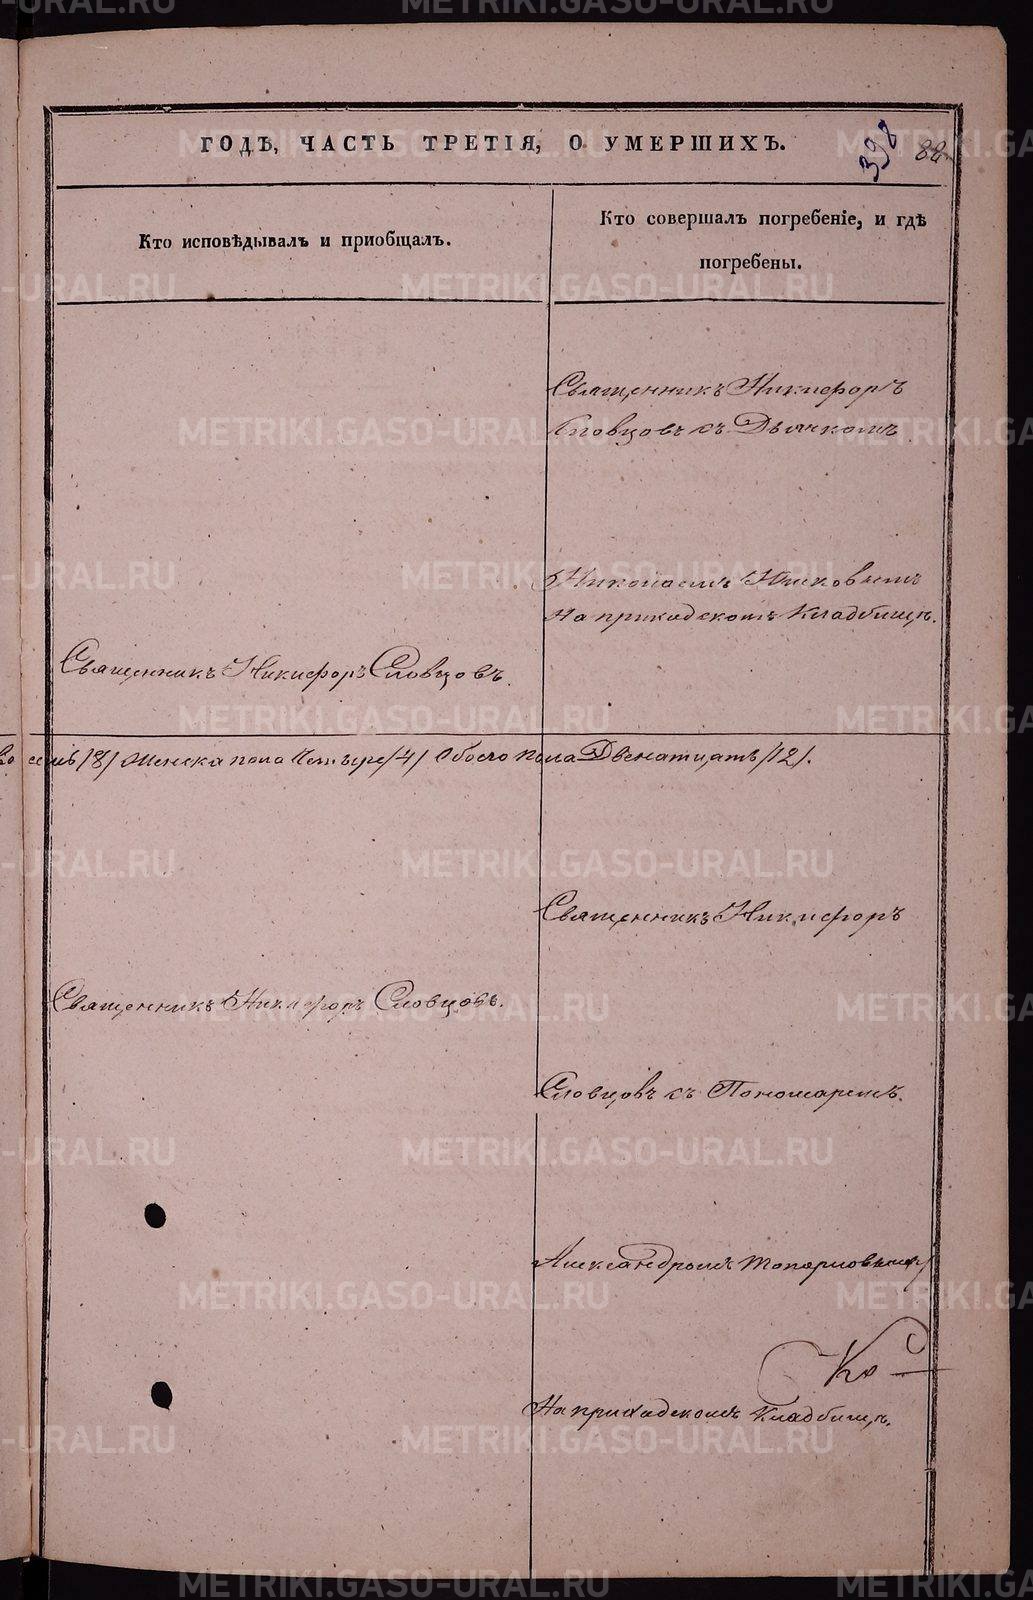 ГОДѢ, ЧАСТЬ ТРЕТІЯ, О УМЕРШИХЪ.
398
88
Кто исповѣдывалъ и приобщалъ.
Кто совершалъ погребеніе, и гдѣ
погребены.
Священникъ Никифоръ
Словцовъ съ Дьячкомъ
Николаемъ
На приходскомъ Кладбищѣ.
Священникъ Никифоръ Словцовъ.
восемь /8/ Женска пола Четыре /4/ Обоего пола Двенатцать /12/.
Священникъ Никифоръ
Священникъ Никифоръ Словцовъ.
Словцовъ съ Пономаремъ
Александромъ Топорковымъ
На приходскомъ Кладбищѣ.
METRIKI.GASO-URAL.RU